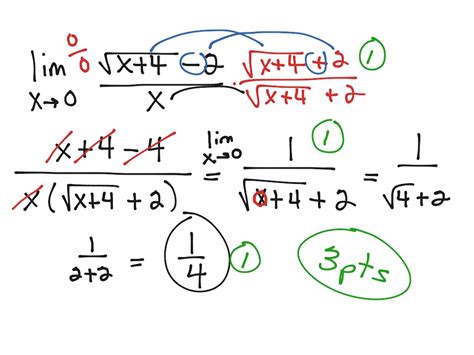 0/0
lim x→0 (√(x+4) - 2)/x · (√(x+4) + 2)/(√(x+4) + 2) 1
(x+4-4)/(x(√(x+4) + 2)) = lim x→0 1/(√(0+4) + 2) = 1/(√4+2) 1
1/(2+2) = 1/4 1 3pts